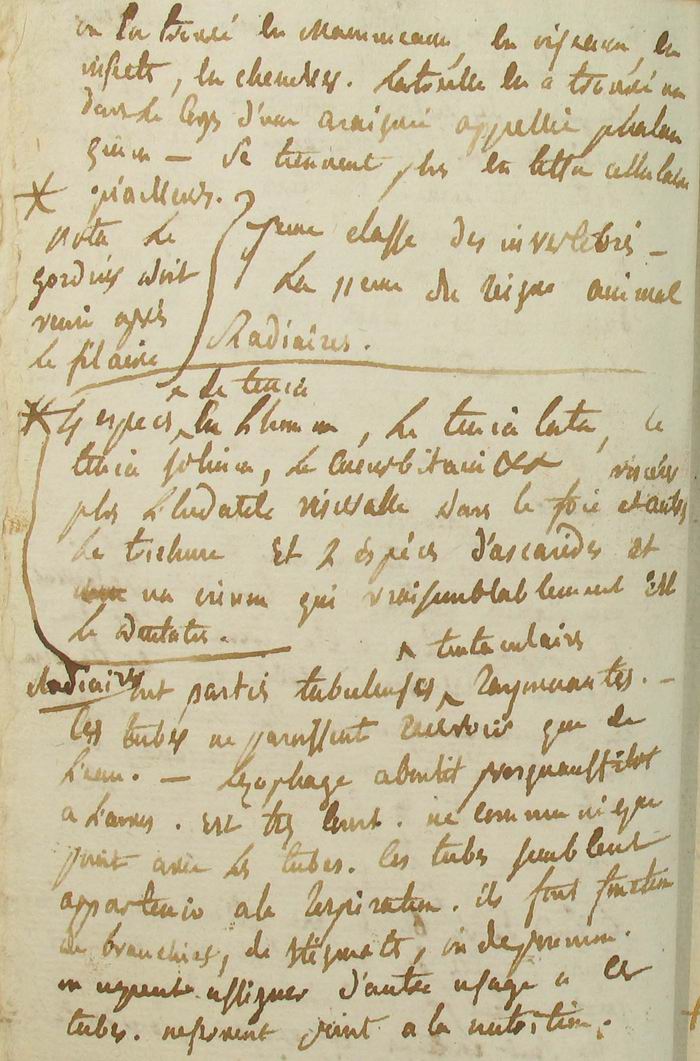 on l'a trouvé en mammeaux, en oiseaux, en
insects, en chenilles. Latreille en a trouvé un
dans le corps d'une araignée appellée phalan
gium — se tiennent plus en tissu cellulaire
graisseux.
* nota le
gordius doit
venir après
le filaire
7eme classe des invertebrés —
la 11eme du reigne animal
Radiaires.
* 4 especes ^ de tenia en L'homme, le tenia lata, le
tenia solium, le cucurbitain
plus L'hydatide viscerale dans le foie et autres
le trichure Et 2 especes d'ascarides et
un qui vraisemblablement est
le
Radiaires ont parties tubuleuses ^ tentaculaires rayonnantes. —
les tubes ne paroissent recevoir que de
L'eau. — L'ezophage aboutit presqu'aussitot
a L'anus. est très court. ne communique
point avec les tubes. les tubes semblent
appartenir a la respiration. ils font fonction
de branchies, de stigmats, ou de poumon.
on ne peut assigner d'autre usage a ces
tubes. ne servent point a la nutrition.